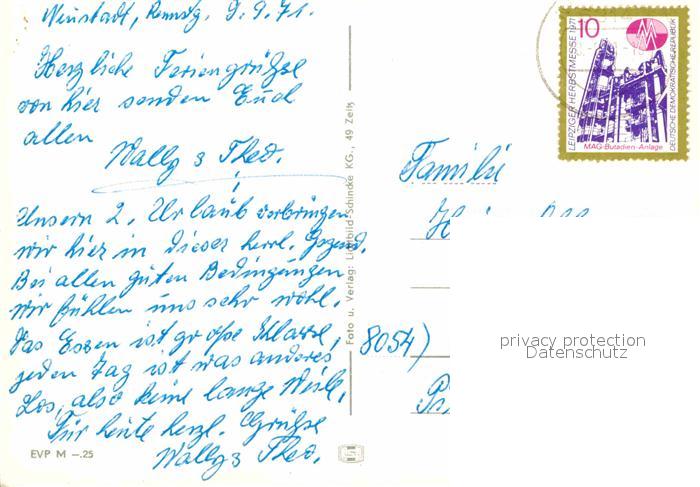 Neustadt, Rennstg. 9.9.71.
Herzliche Feriengrüße
von hier senden Euch
allen
Wally & Theo.
Unsern 2. Urlaub verbringen
wir hier in dieser herrl. Gegend.
Bei allen guten Bedingungen
wir fühlen uns sehr wohl.
Das Essen ist große Klasse,
jeden Tag ist was anderes
Los, also keine lange Weile,
Für heute herzl. Grüße
Wally & Theo.
EVP M –.25
Foto u. Verlag: Lichtbild-Schincke KG., 49 Zeitz
10
LEIPZIGER HERBSTMESSE 1971
DEUTSCHE DEMOKRATISCHE REPUBLIK
MAG-Butadien-Anlage
Familie
8054)
privacy protection
Datenschutz